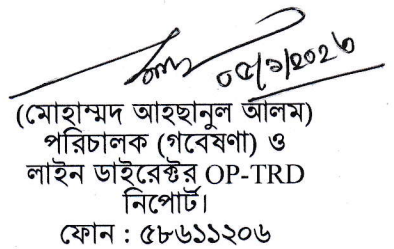 ০৫/১/২০২৬
(মোহাম্মদ আহছানুল আলম)
পরিচালক (গবেষণা) ও
লাইন ডাইরেক্টর OP-TRD
নিপোর্ট।
ফোন : ৫৮৬১১২০৬